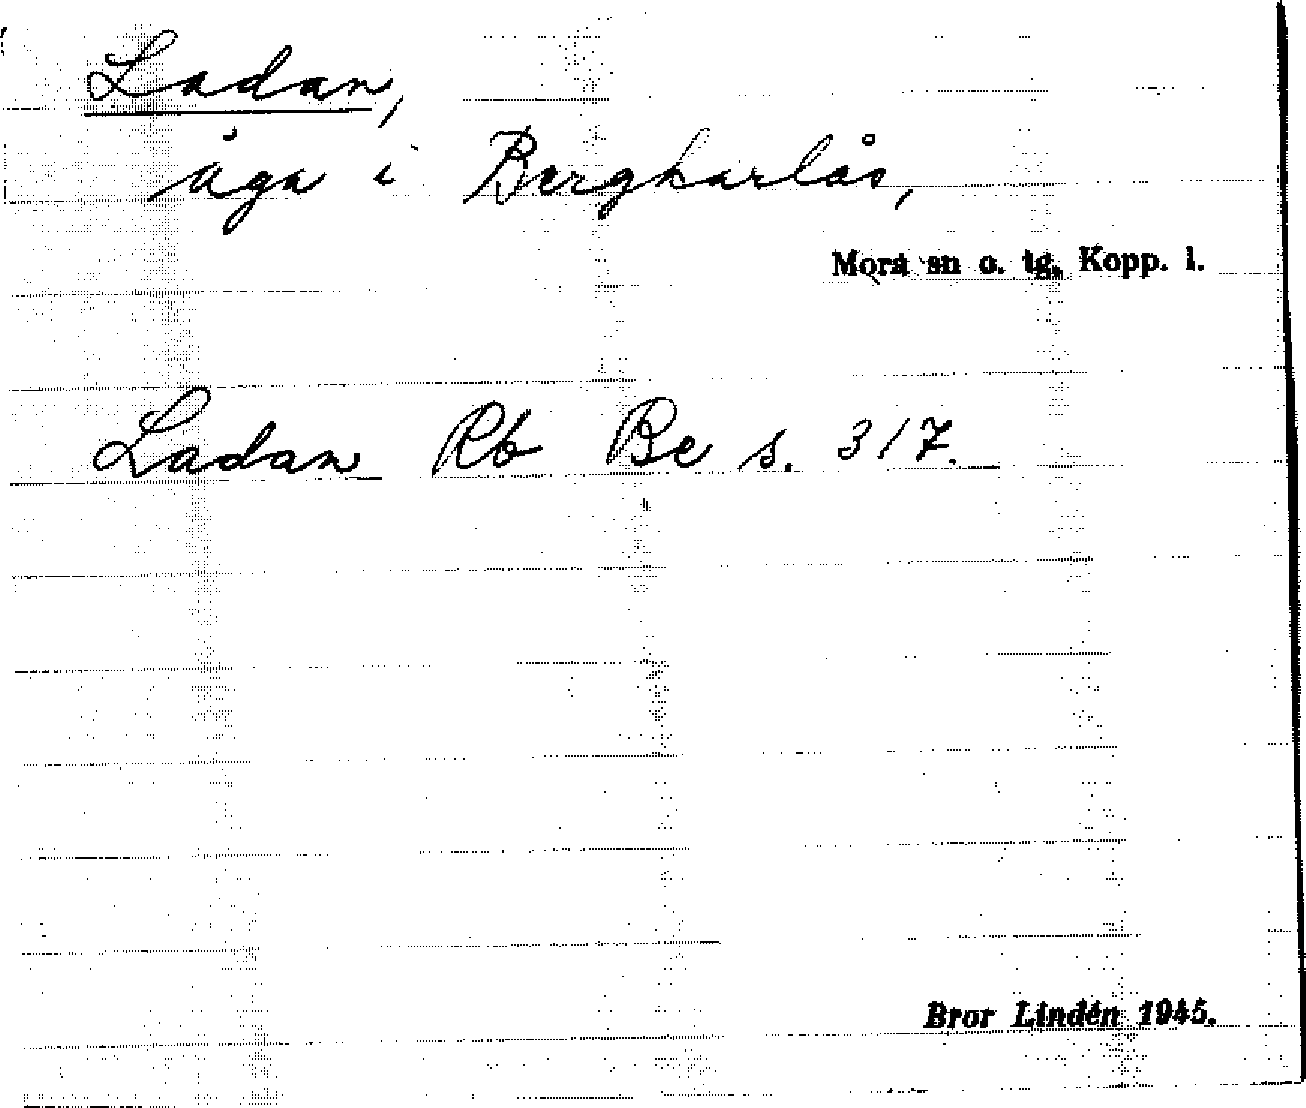 Ladan,
äga i Bergkarlås,
Mora sn o. tg, Kopp. l.
Ladan Rb Be s. 317.
Bror Lindén 1945.